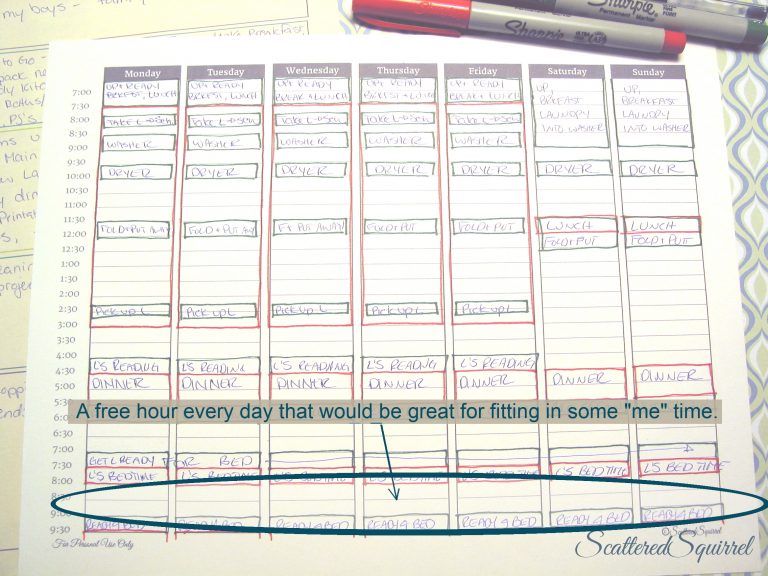 my boys -
Sharpie
Sharpie
Permanent Marker
Make Breakfast,
to Go -
Monday Tuesday Wednesday Thursday Friday Saturday Sunday
7:00 UP + READY UP + READY UP + READY UP + READY UP + READY UP, UP,
BRKFST, LUNCH BRKFST, LUNCH BREAK + LUNCH BRKFST + LUNCH BREAK + LUNCH BREKFAST BREKFAST
7:30 LAUNDRY LAUNDRY
8:00 TAKE L TAKE L TAKE L TAKE L TAKE L INTO WASHER INTO WASHER
8:30
9:00 WASHER WASHER WASHER WASHER WASHER
9:30
10:00 DRYER DRYER DRYER DRYER DRYER DRYER DRYER
10:30
11:00
11:30 LUNCH LUNCH
12:00 FOLD + PUT AWAY FOLD + PUT AWAY F + PUT AWAY FOLD + PUT FOLD + PUT FOLD + PUT FOLD + PUT
12:30
1:00
1:30
2:00
2:30 Pick up L Pick up L Pick up L Pick up L Pick up L
3:00
3:30
4:00
4:30 L'S READING L'S READING L'S READING L'S READING L'S READING
5:00 DINNER DINNER DINNER DINNER DINNER DINNER DINNER
5:30
A free hour every day that would be great for fitting in some "me" time.
6:30
7:00
7:30 GET L READY FOR BED
8:00 L'S BEDTIME L'S BEDTIME L'S BEDTIME L'S BEDTIME L'S BEDTIME L'S BEDTIME L'S BED TIME
8:30
9:00
9:30 READY 4 BED READY 4 BED READY 4 BED READY 4 BED READY 4 BED READY 4 BED READY 4 BED
For Personal Use Only
©ScatteredSquirrel
ScatteredSquirrel